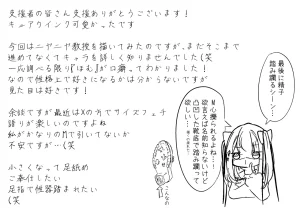 支援者の皆さん支援ありがとうございます!
キュアウインク可愛かったです
今回はニヤニヤ教授を描いてみたのですが、まだそこまで
進めてなくてキャラを詳しく知りませんでした(笑
一応調べる限り『ほむ』が口癖ってわかりました!
なので性格上で好きになるかは分からないですが
見た目は好きです!
余談ですが最近はXの方でサイズフェチ
語りが楽しいのですよね
私がかなりのMで引いてないか
不安ですが…(笑
小さくなって足舐め
ご奉仕したい
足指で性器踏まれたい
(笑
最後に精子
踏み躙るシーン…
M心擽られるよね…!
欲言えば名前知らないけど
凸凹した靴底で踏み躙って
欲しい…